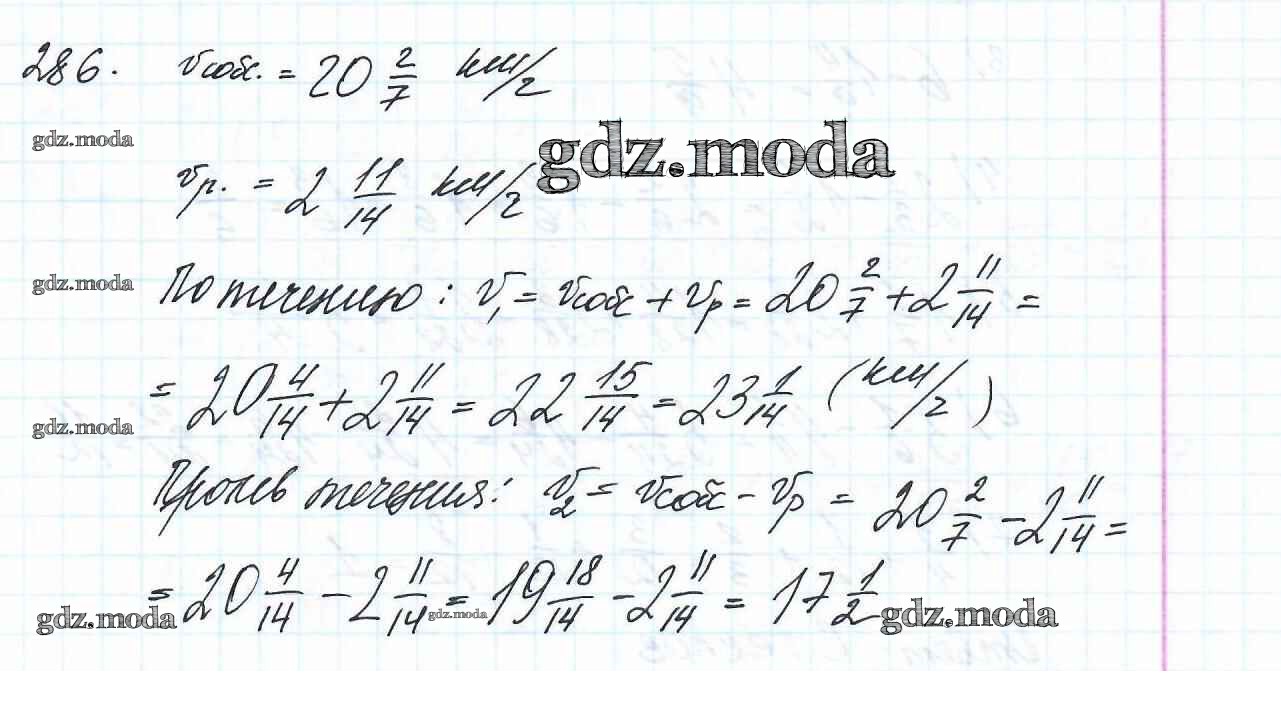 286. vсобс. = 20 2/7 км/г
gdz.moda
gdz.moda
vр. = 2 11/14 км/г
gdz.moda
По течению: v₁ = vсобс + vр = 20 2/7 + 2 11/14 =
= 20 4/14 + 2 11/14 = 22 15/14 = 23 1/14 (км/г)
gdz.moda
Против течения: v₂ = vсобс - vр = 20 2/7 - 2 11/14 =
= 20 4/14 - 2 11/14 = 19 18/14 - 2 11/14 = 17 1/2
gdz.moda
gdz.moda
gdz.moda